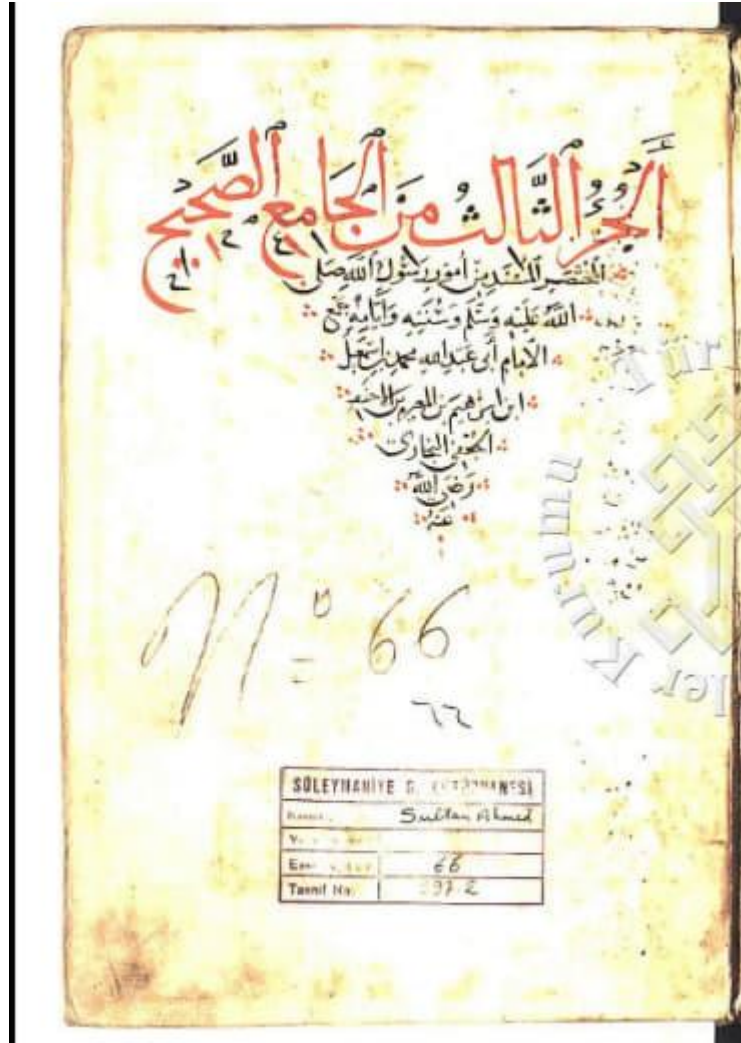 اَلْجُزْءُ الثَّالِثُ مِنَ الْجَامِعِ الصَّحِيحِ
المختصر المسند من أمور رسول الله صَلى
الله عَليْه وَسَلم وَسُننه وَأيامه جمع
الامام أبى عَبد الله محمد بن اسمعيل
ابن ابرهيم بن المغيرة بن الاحنف
الجعفى البخارى
رَضى الله
عَنه
Nº 66
٦٦
SÜLEYMANİYE G. KÜTÜPHANESİ
Sultan Ahmed
66
Tasnif No. 297.2
Tür
ler Kurumu